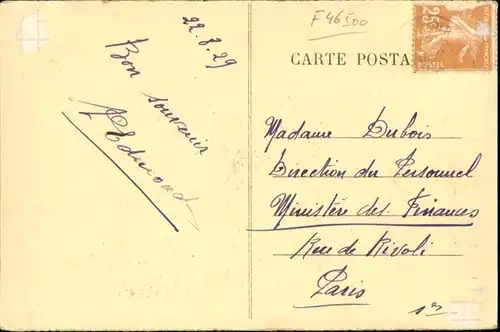 22.8.29
Bon souvenir
Edmond
F46500
CARTE POSTA
25c
POSTES
Madame Dubois
Direction du Personnel
Ministère des Finances
Rue de Rivoli
Paris